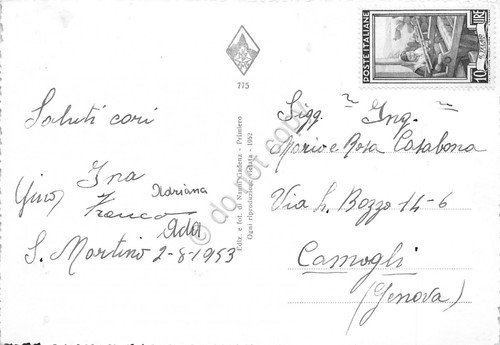 POSTE ITALIANE
10 LIRE
775
Saluti cari
Ina
Gino
Adriana
Franco
Ada
S. Martino 2-8-1953
Ediz. e fot. di Nunzi Gadenz - Primiero
Ogni riproduzione vietata - 1952
do not copy
Sigg. Ing.
Mario e Rosa Casabona
Via L. Bozzo 14-6
Camogli
(Genova)